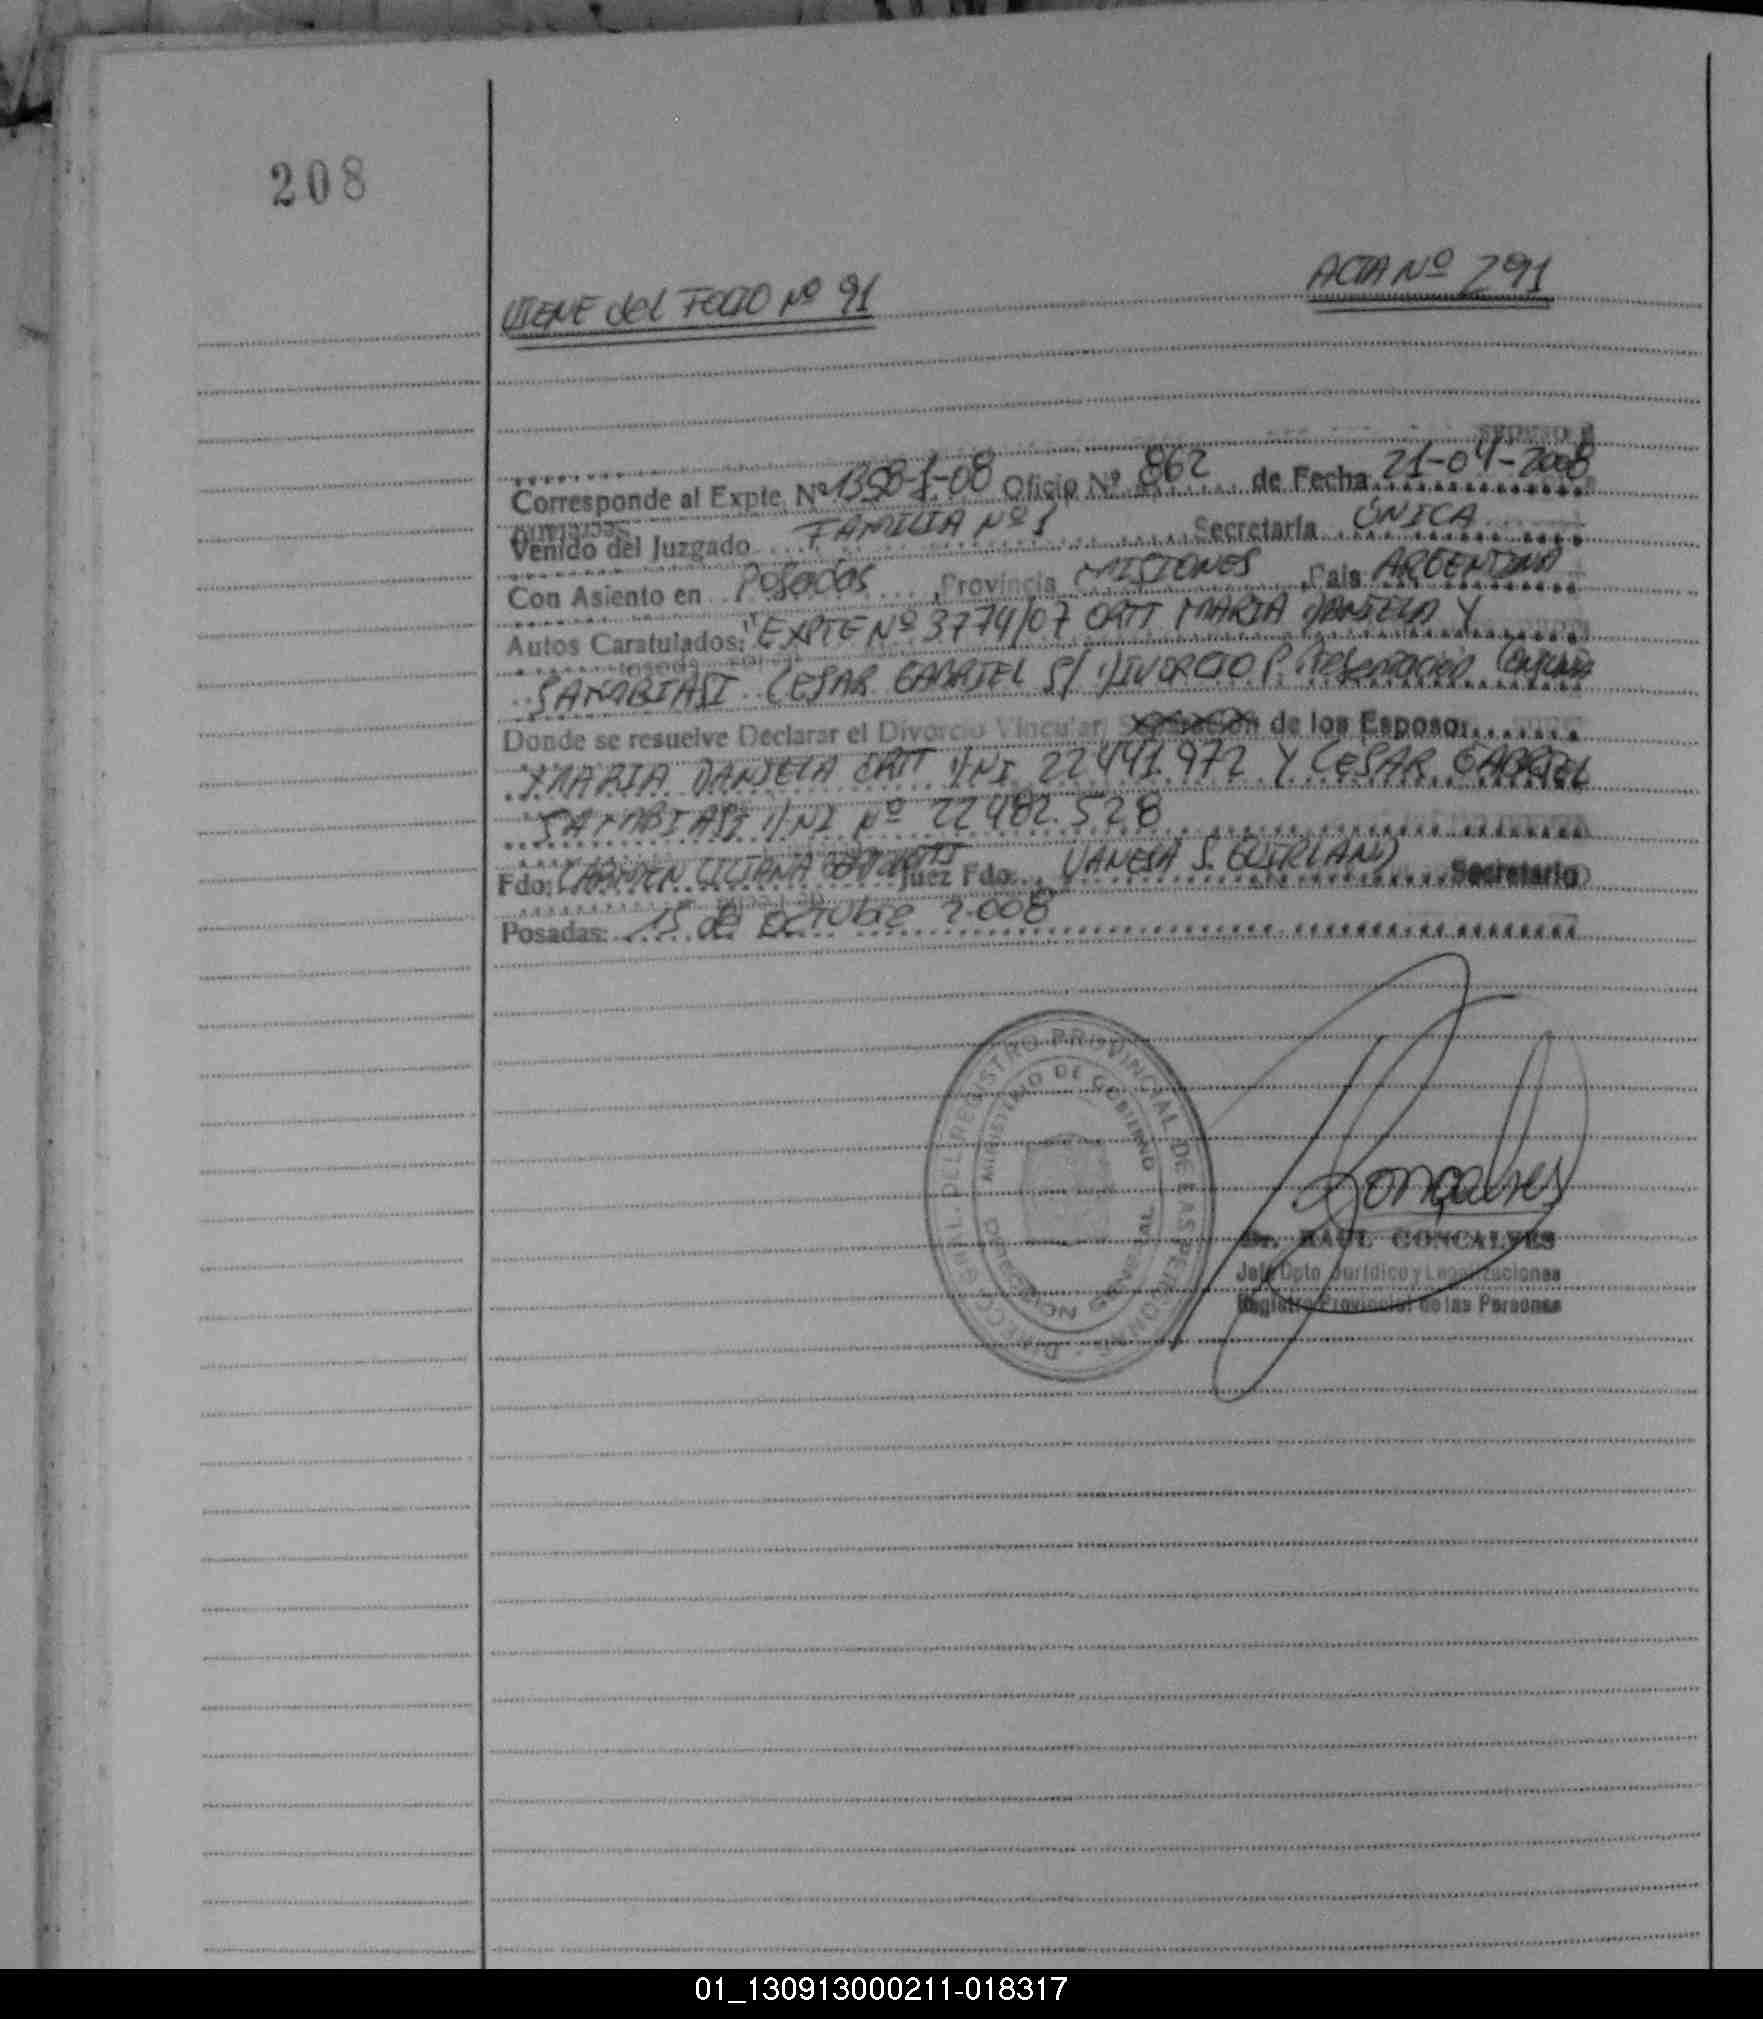 208
VIENE del FOLIO Nº 91
ACTA Nº 291
Corresponde al Expte. Nº 1350-1-08 Oficio Nº 862 de Fecha 21-04-2008
Venido del Juzgado FAMILIA Nº 1 Secretaría ÚNICA
Con Asiento en Posadas, Provincia MISIONES, País ARGENTINA
Autos Caratulados: "EXPTE Nº 3774/07 ORTT MARIA DANIELA Y
SAMABIASI CESAR GABRIEL S/ DIVORCIO P. Presentación Conjunta
Donde se resuelve Declarar el Divorcio Vincular, de los Esposos
MARIA DANIELA ORTT DNI 22.441.972 Y CESAR GABRIEL
SAMABIASI DNI Nº 22.482.528
Fdo: CARMEN LILIANA Juez Fdo. VANESA S. GUIRLAND Secretario
Posadas: 15 de octubre 2.008
DIRECC. GRAL. DEL REGISTRO PROVINCIAL DE LAS PERSONAS
MINISTERIO DE GOBIERNO
Goncalves
Dr. RAUL GONCALVES
Jefe Dpto. Jurídico y Legalizaciones
Registro Provincial de las Personas
01_130913000211-018317